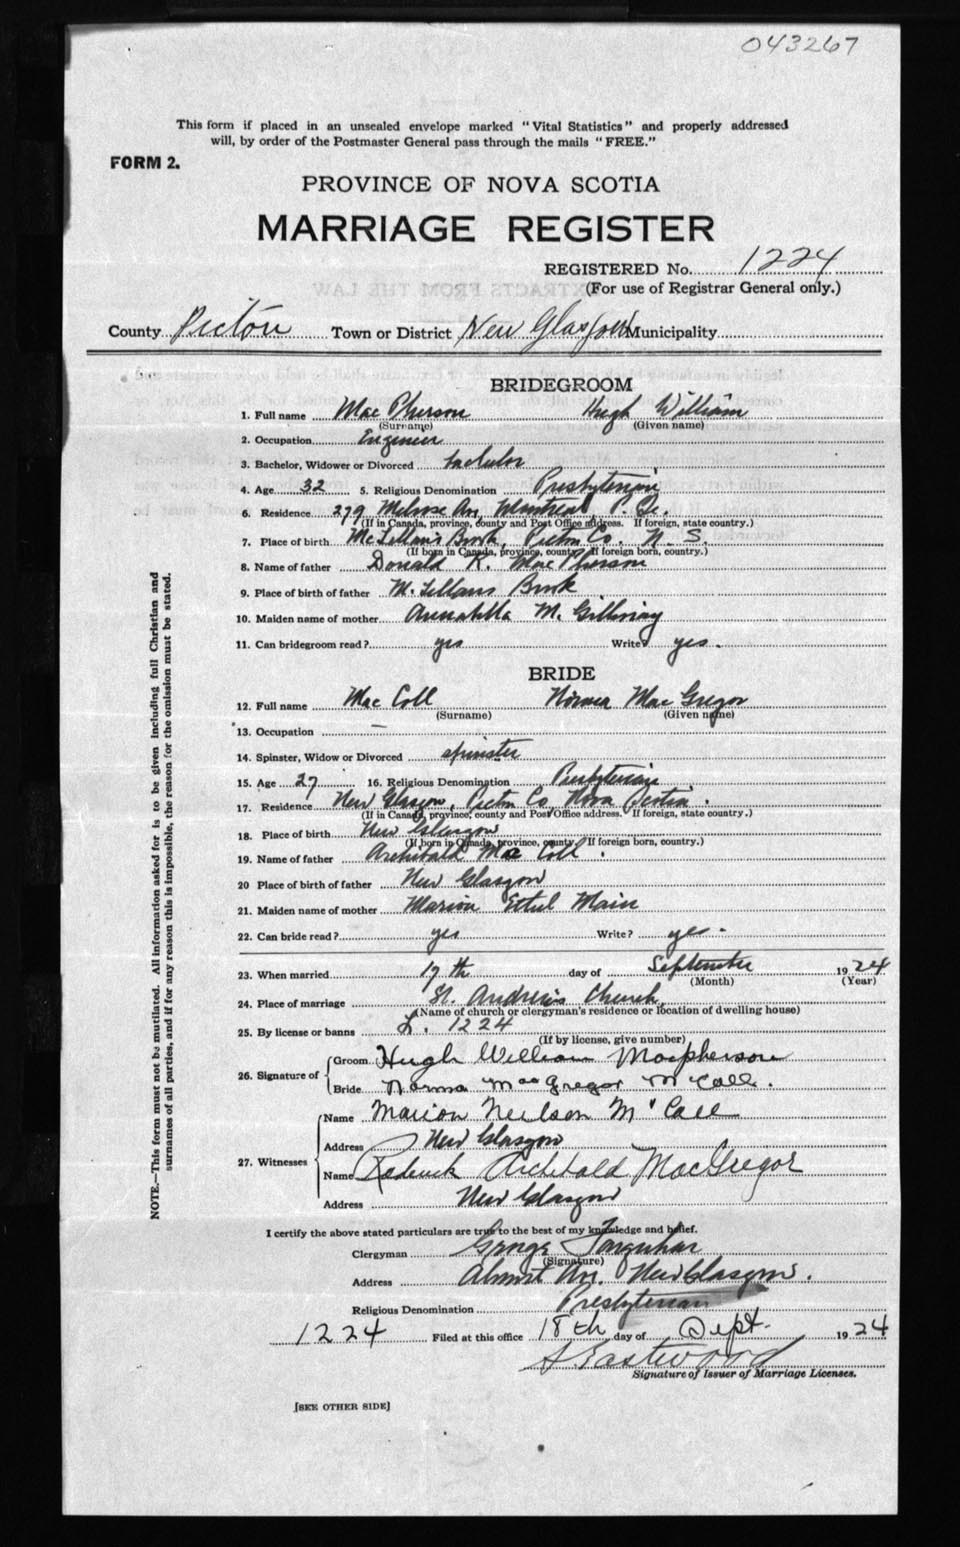 043267
This form if placed in an unsealed envelope marked "Vital Statistics" and properly addressed
will, by order of the Postmaster General pass through the mails "FREE."
FORM 2.
PROVINCE OF NOVA SCOTIA
MARRIAGE REGISTER
REGISTERED No. 1224
(For use of Registrar General only.)
County Pictou Town or District New Glasgow Municipality
BRIDEGROOM
1. Full name Mac Pherson Hugh William
(Surname) (Given name)
2. Occupation Engineer
3. Bachelor, Widower or Divorced bachelor
4. Age 32 5. Religious Denomination Presbyterian
6. Residence 279 Melrose Av, Montreal, P. Q.
(If in Canada, province, county and Post Office address. If foreign, state country.)
7. Place of birth McLellan's Brook, Pictou Co. N. S.
(If born in Canada, province, county. If foreign born, country.)
8. Name of father Donald K. MacPherson
9. Place of birth of father McLellans Brook
10. Maiden name of mother Annabella McGillivray
11. Can bridegroom read? yes Write? yes.
BRIDE
12. Full name Mac Coll Norma Mac Gregor
(Surname) (Given name)
13. Occupation —
14. Spinster, Widow or Divorced spinster
15. Age 27 16. Religious Denomination Presbyterian
17. Residence New Glasgow, Pictou Co, Nova Scotia.
(If in Canada, province, county and Post Office address. If foreign, state country.)
18. Place of birth New Glasgow
(If born in Canada, province, county. If foreign born, country.)
19. Name of father Archibald Mac Coll.
20 Place of birth of father New Glasgow
21. Maiden name of mother Marion Ethel Main
22. Can bride read? yes Write? yes.
23. When married 17th day of September 1924
(Month) (Year)
24. Place of marriage St. Andrew's Church
(Name of church or clergyman's residence or location of dwelling house)
25. By license or banns L. 1224
(If by license, give number)
26. Signature of Groom Hugh William Macpherson
Bride Norma MacGregor McColl.
27. Witnesses Name Marion Neilson McColl
Address New Glasgow
Name Roderick Archibald MacGregor
Address New Glasgow
I certify the above stated particulars are true to the best of my knowledge and belief.
Clergyman George Farquhar
(Signature)
Address Av. New Glasgow.
Religious Denomination Presbyterian
1224 Filed at this office 18th day of Sept. 1924
Eastwood
Signature of Issuer of Marriage Licenses.
[SEE OTHER SIDE]
NOTE.—This form must not be mutilated. All information asked for is to be given including full Christian and
surnames of all parties, and if for any reason this is impossible, the reason for the omission must be stated.